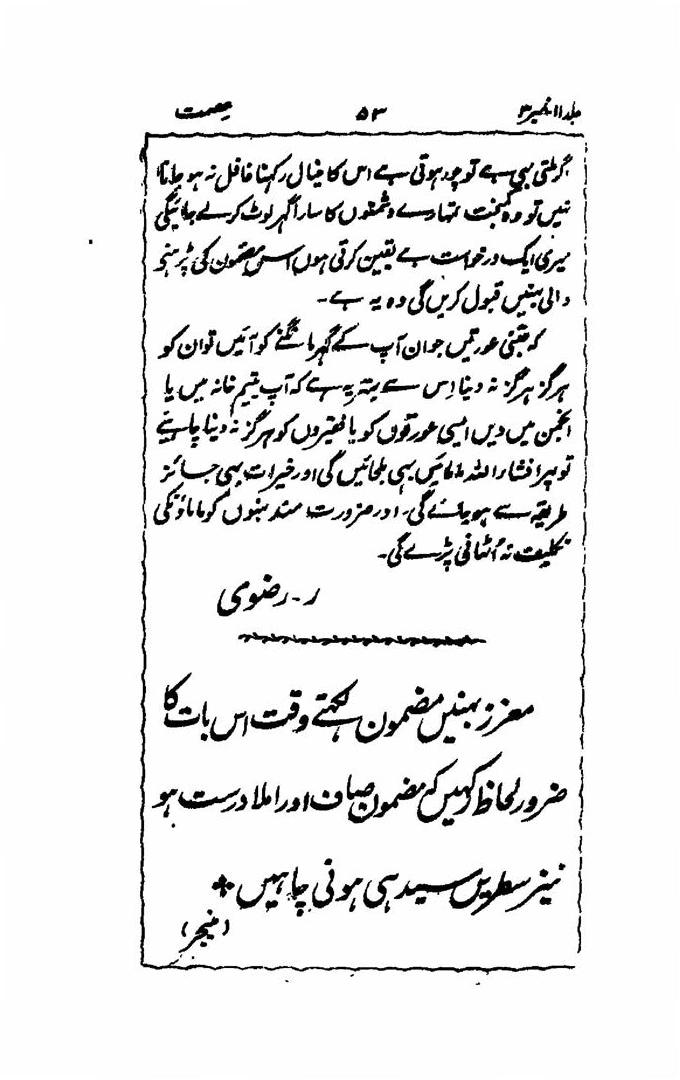 جلد ۱۱ نمبر ۳ ۵۳ عصمت
گرہتی بھی ہے تو چور ہوتی ہے اس کا خیال رکہنا غافل نہ ہو جانا
نہیں تو وہ کمبخت تمہارے دشمنوں کا سارا گہر لوٹ کر لے جائیگی
میری ایک درخواست ہے یقین کرتی ہوں اس مضمون کی پڑہنے
والی بہنیں قبول کریں گی وہ یہ ہے۔
کہ جتنی عورتیں جوان آپ کے گہر مانگنے کو آئیں تو ان کو
ہرگز ہرگز نہ دینا اِس سے بہتر یہ ہے کہ آپ یتیم خانہ میں یا
انجمن میں دیں ایسی عورتوں کو یا فقیروں کو ہرگز نہ دینا چاہیے
تو پہر انشاء اللہ مامائیں بہی ملجائیں گی اور خیرات بہی جائز
طریقہ سے ہو جائے گی۔ اور ضرورت مند بہنوں کو ماماؤنکی
تکلیف نہ اُٹہانی پڑے گی۔
ر۔ رضوی
معزز بہنیں مضمون لکہتے وقت اس بات کا
ضرور لحاظ رکہیں کہ مضمون صاف اور املا درست ہو
نیز سطریں سیدہی ہونی چاہیں *
(منیجر)